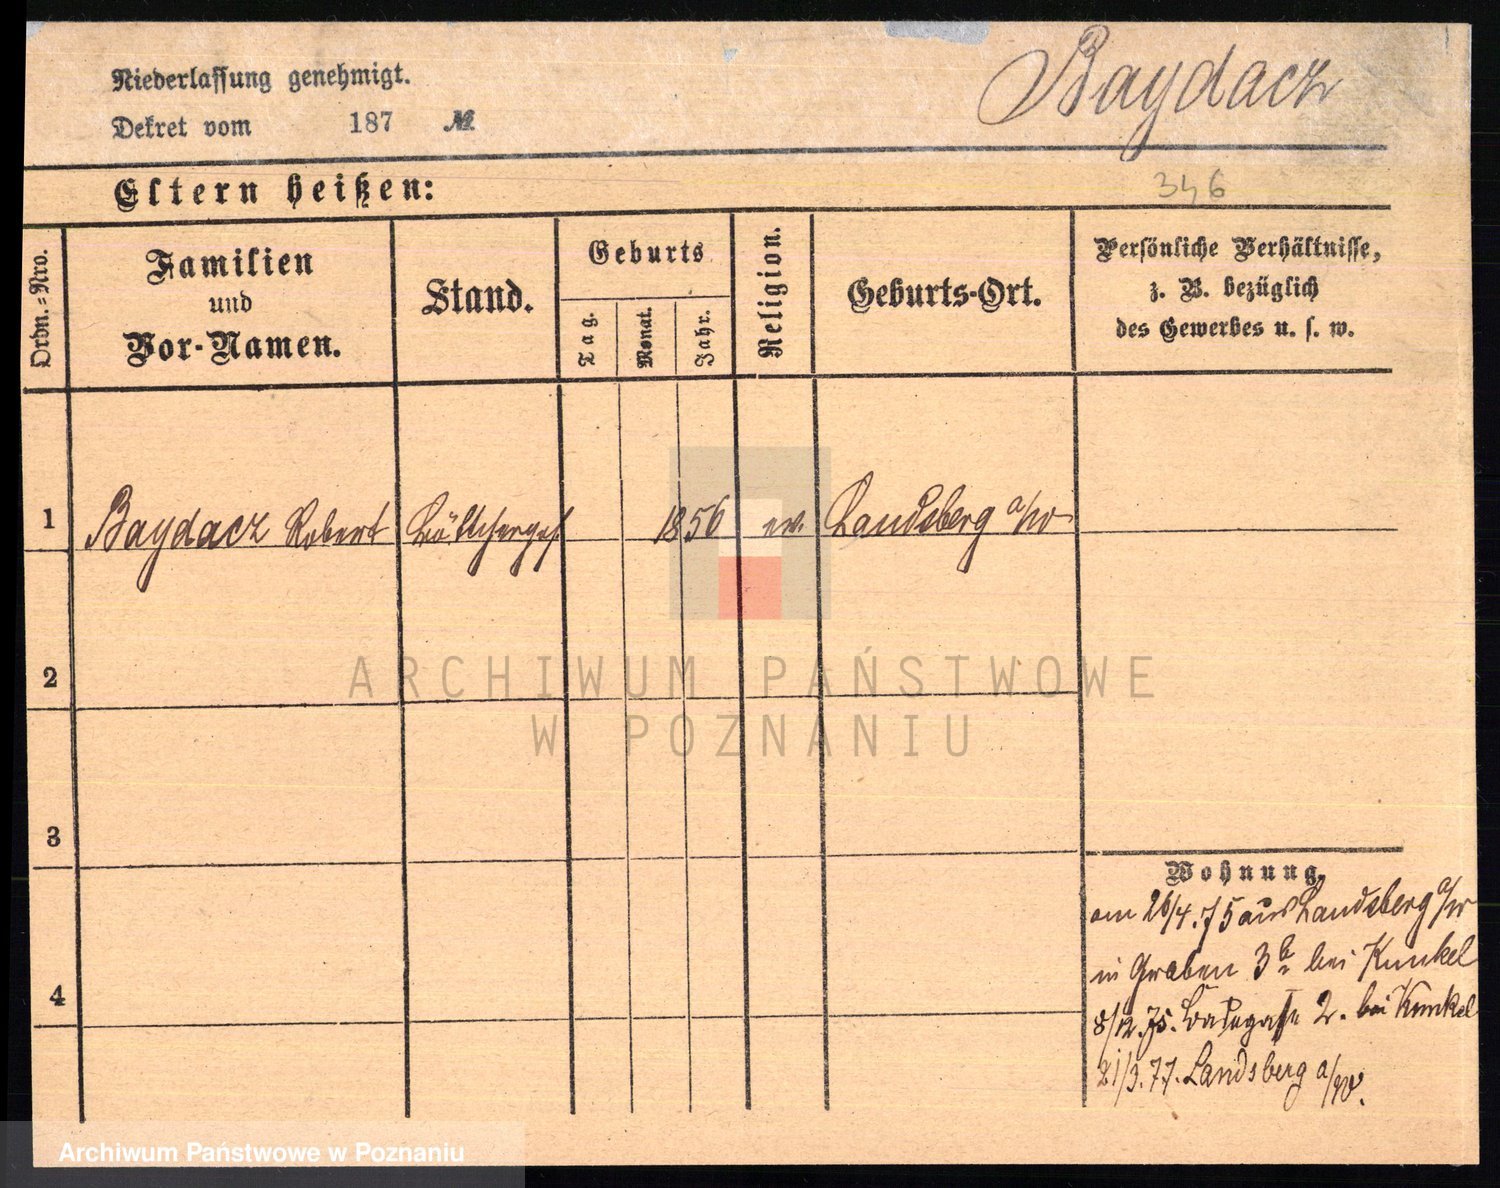 Niederlassung genehmigt.
Dekret vom 187 №
Baydacz
Eltern heißen:
346
Ordn.=Nro.
Familien
und
Vor-Namen.
Stand.
Geburts
Tag.
Monat.
Jahr.
Religion.
Geburts-Ort.
Persönliche Verhältnisse,
z. B. bezüglich
des Gewerbes u. s. w.
1 Baydacz Robert Böttcherges 1856 ev. Landsberg a/W
2
3
4
Wohnung.
am 26/4.75 aus Landsberg a/W
in Graben 3b bei Kunkel
8/12.75. Badegasse 2. bei Kunkel
21/3.77. Landsberg a/W.
ARCHIWUM PAŃSTWOWE
W POZNANIU
Archiwum Państwowe w Poznaniu